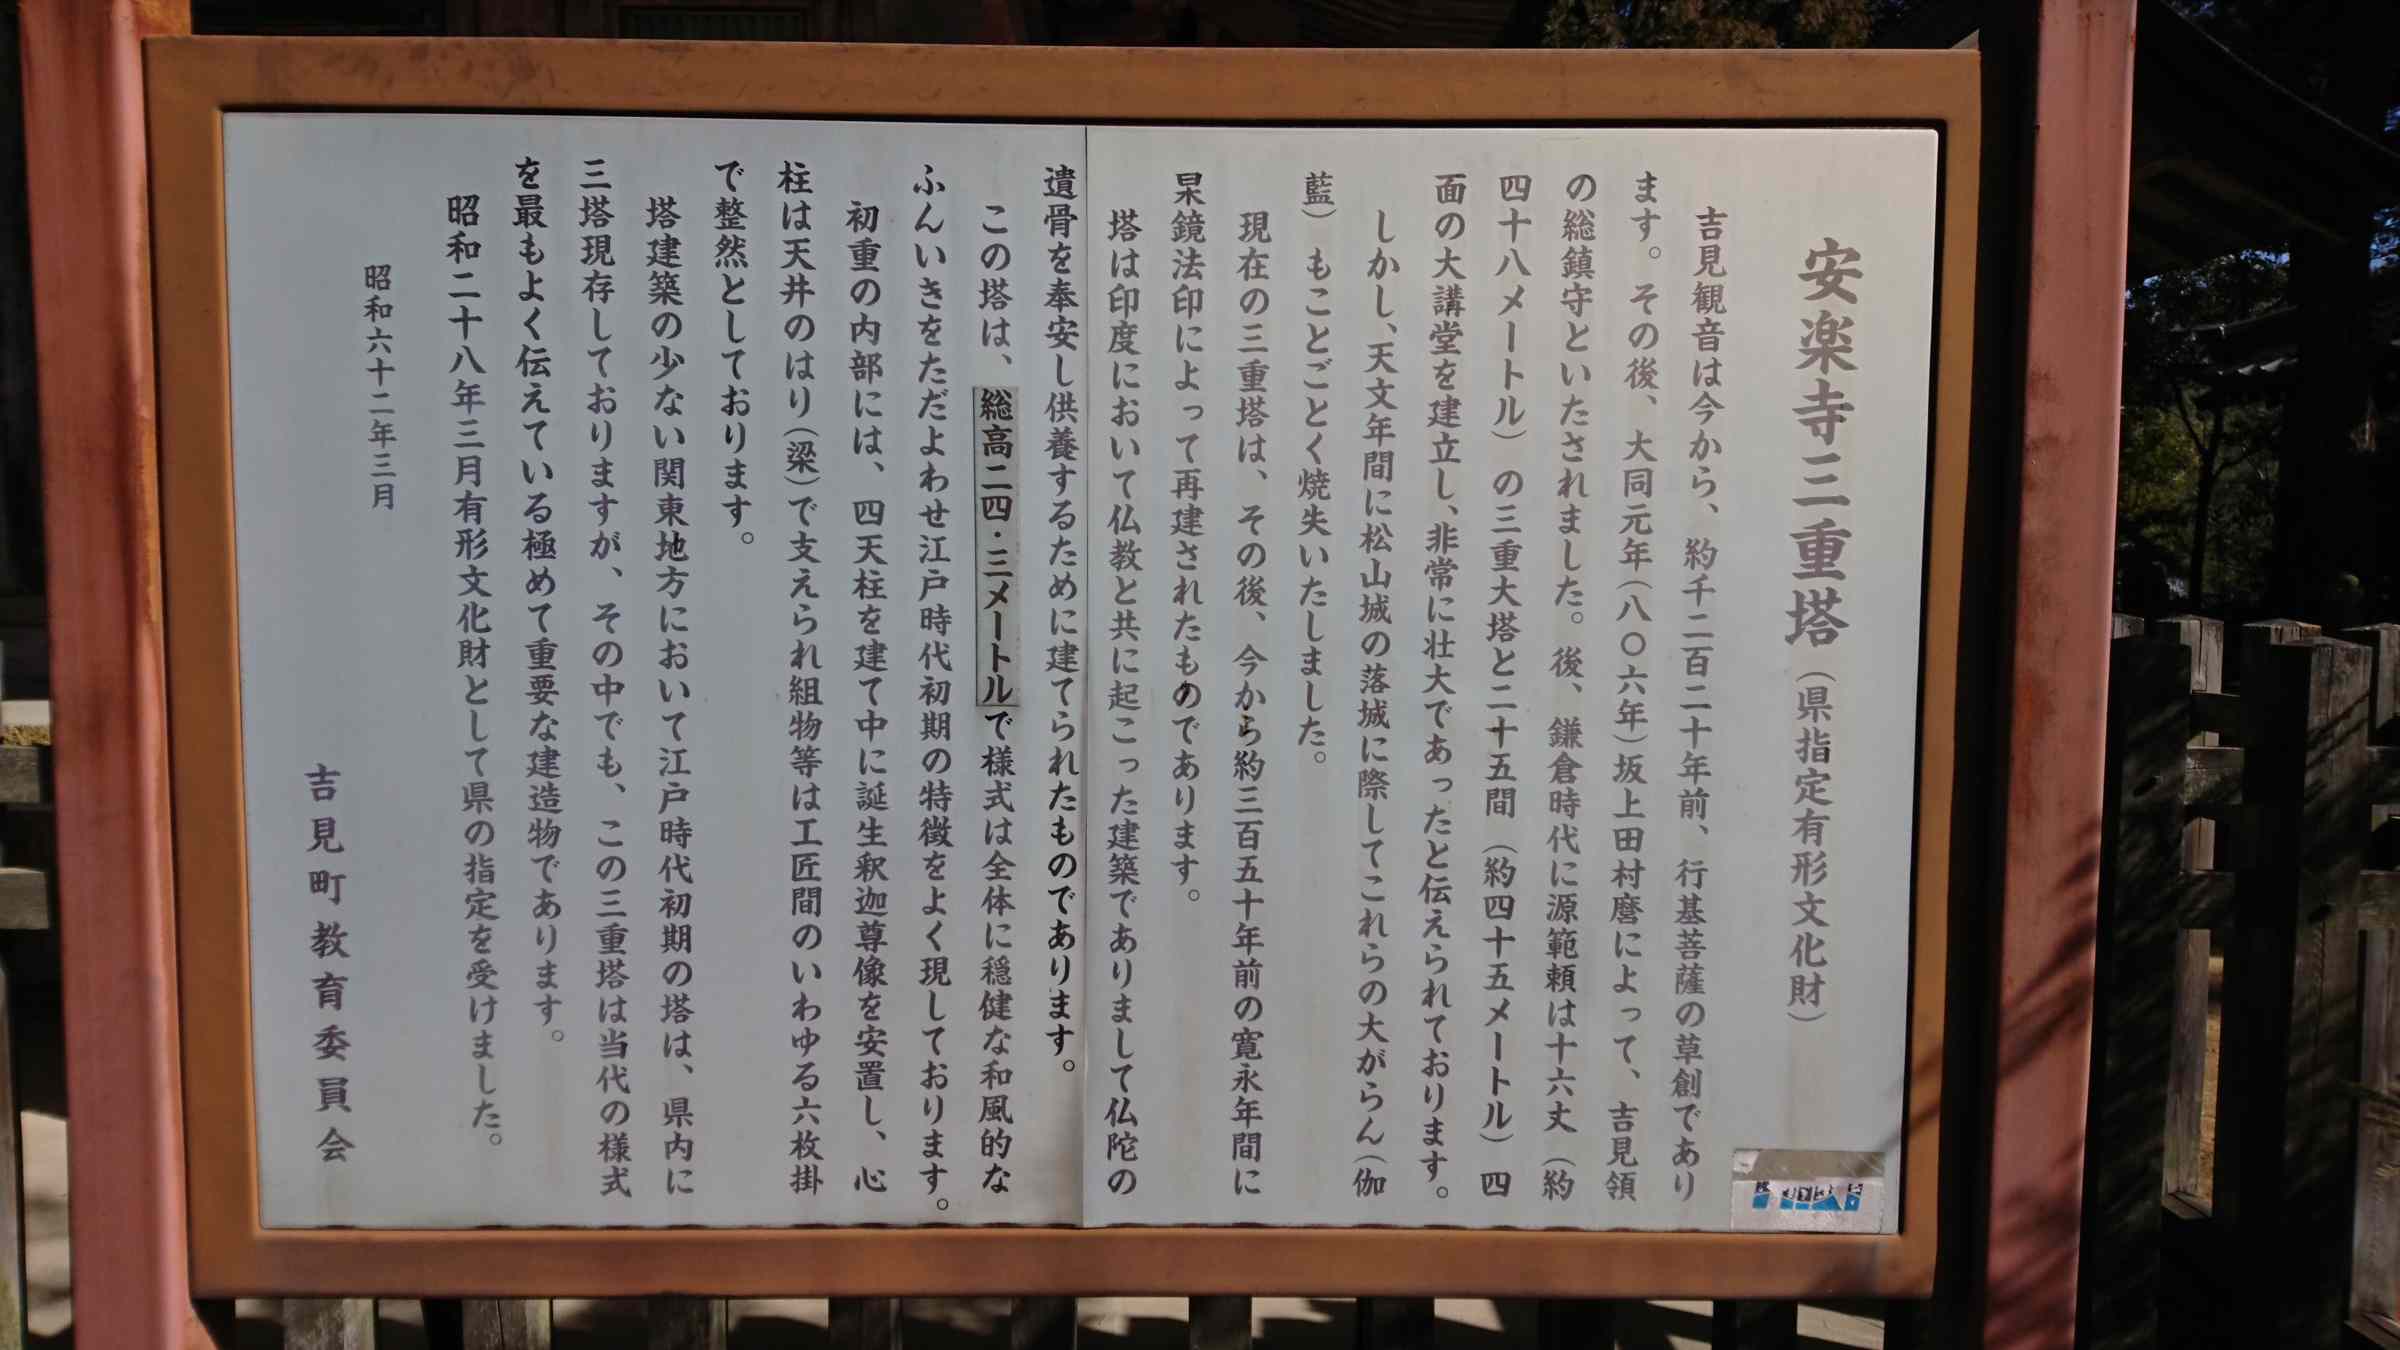 安楽寺三重塔（県指定有形文化財）
吉見観音は今から、約千二百二十年前、行基菩薩の草創であり
ます。その後、大同元年（八〇六年）坂上田村麿によって、吉見領
の総鎮守といたされました。後、鎌倉時代に源範頼は十六丈（約
四十八メートル）の三重大塔と二十五間（約四十五メートル）四
面の大講堂を建立し、非常に壮大であったと伝えられております。
しかし、天文年間に松山城の落城に際してこれらの大がらん（伽
藍）もことごとく焼失いたしました。
現在の三重塔は、その後、今から約三百五十年前の寛永年間に
杲鏡法印によって再建されたものであります。
塔は印度において仏教と共に起こった建築でありまして仏陀の
遺骨を奉安し供養するために建てられたものであります。
この塔は、総高二四・三メートルで様式は全体に穏健な和風的な
ふんいきをただよわせ江戸時代初期の特徴をよく現しております。
初重の内部には、四天柱を建て中に誕生釈迦尊像を安置し、心
柱は天井のはり（梁）で支えられ組物等は工匠間のいわゆる六枚掛
で整然としております。
塔建築の少ない関東地方において江戸時代初期の塔は、県内に
三塔現存しておりますが、その中でも、この三重塔は当代の様式
を最もよく伝えている極めて重要な建造物であります。
昭和二十八年三月有形文化財として県の指定を受けました。
昭和六十二年三月
吉見町教育委員会